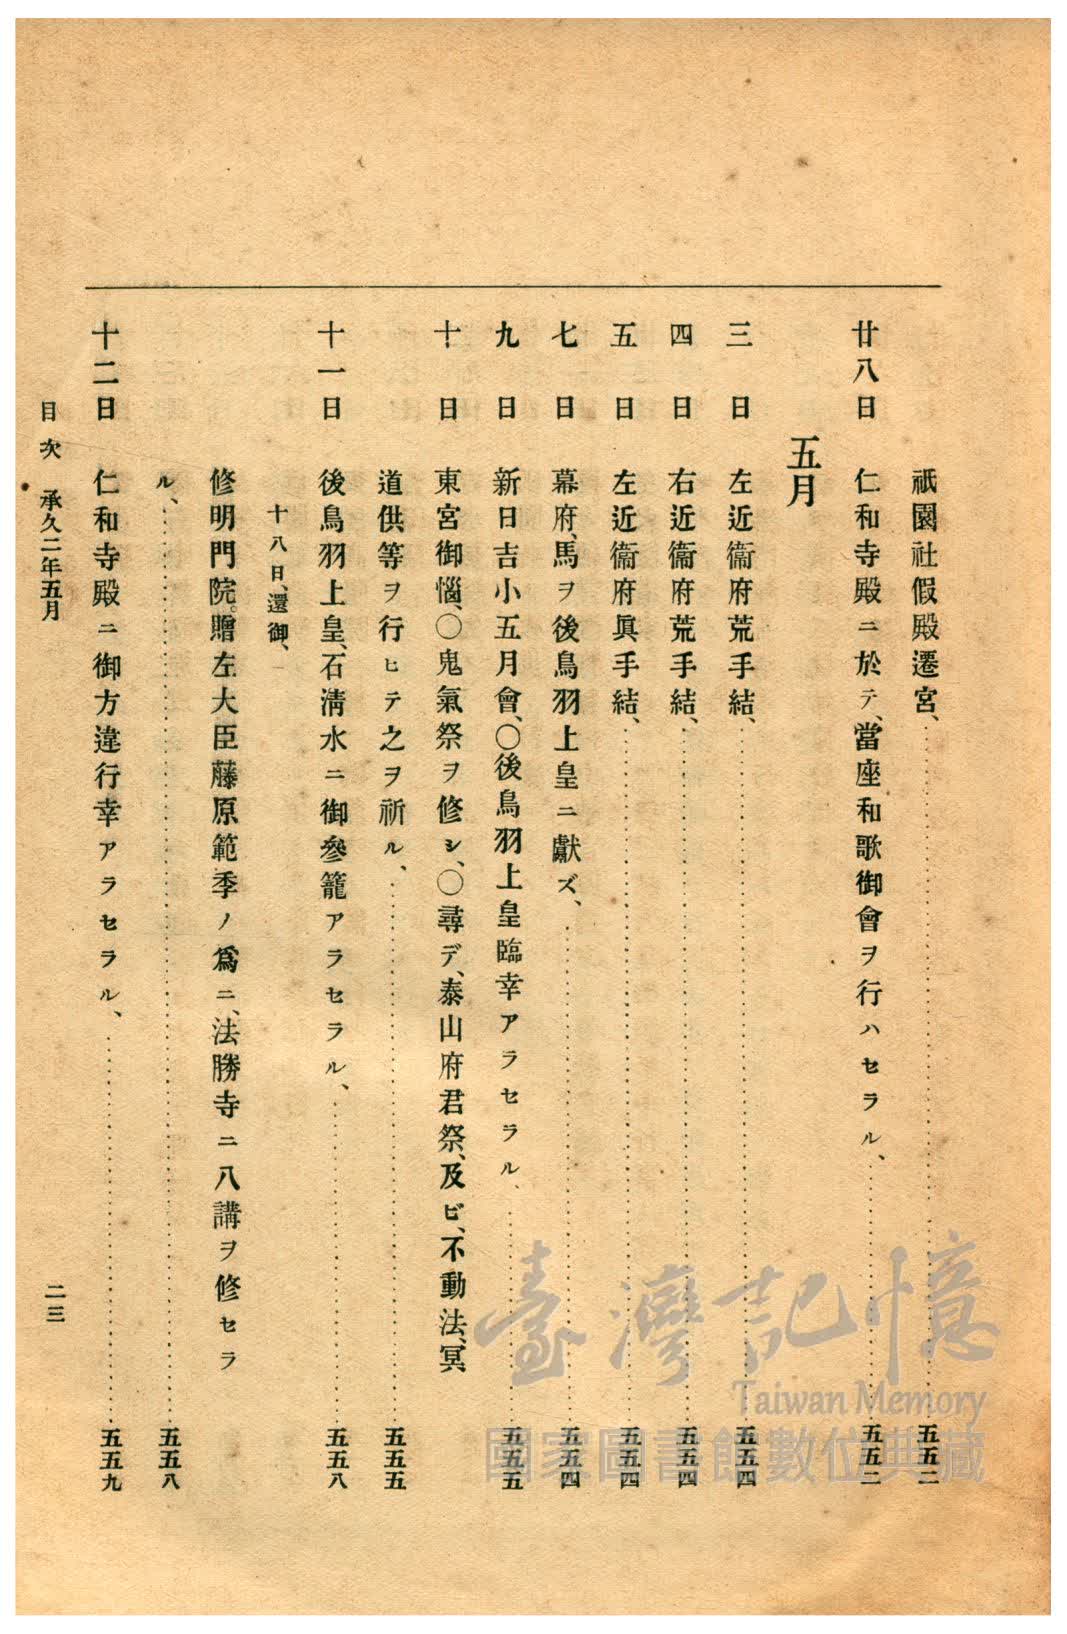 祇園社假殿遷宮、……五五二
廿八日 仁和寺殿ニ於テ、當座和歌御會ヲ行ハセラル、……五五二
五月
三日 左近衞府荒手結、……五五四
四日 右近衞府荒手結、……五五四
五日 左近衞府眞手結、……五五四
七日 幕府、馬ヲ後鳥羽上皇ニ獻ズ、……五五四
九日 新日吉小五月會、〇後鳥羽上皇臨幸アラセラル、……五五五
十日 東宮御惱、〇鬼氣祭ヲ修シ、〇尋デ、泰山府君祭、及ビ、不動法、冥
道供等ヲ行ヒテ之ヲ祈ル、……五五五
十一日 後鳥羽上皇、石淸水ニ御參籠アラセラル、……五五八
十八日、還御、
修明門院、贈左大臣藤原範季ノ爲ニ、法勝寺ニ八講ヲ修セラ
ル、……五五八
十二日 仁和寺殿ニ御方違行幸アラセラル、……五五九
目次 承久二年五月 二三
臺灣記憶
Taiwan Memory
國家圖書館數位典藏